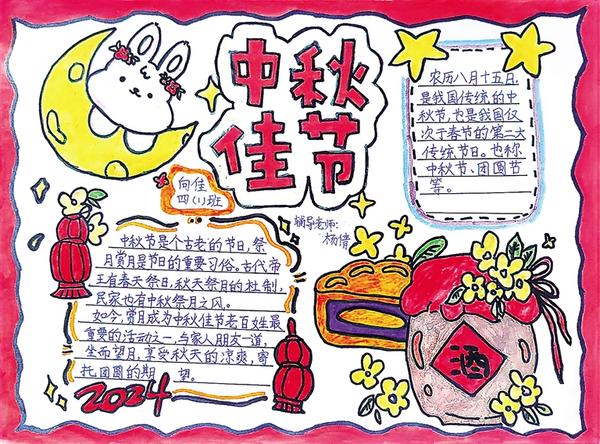 中秋
佳节
农历八月十五日,
是我国传统的中
秋节,也是我国仅
次于春节的第二大
传统节日。也称
中秋节、团圆节
等。
向佳
四(1)班
辅导老师:
杨倩
中秋节是个古老的节日,祭
月赏月是节日的重要习俗。古代帝
王有春天祭日,秋天祭月的社制,
民家也有中秋祭月之风。
如今,赏月成为中秋佳节老百姓最
重要的活动之一,与家人朋友一道,
坐而望月,享受秋天的凉爽,寄
托团圆的期望。
2024
酒